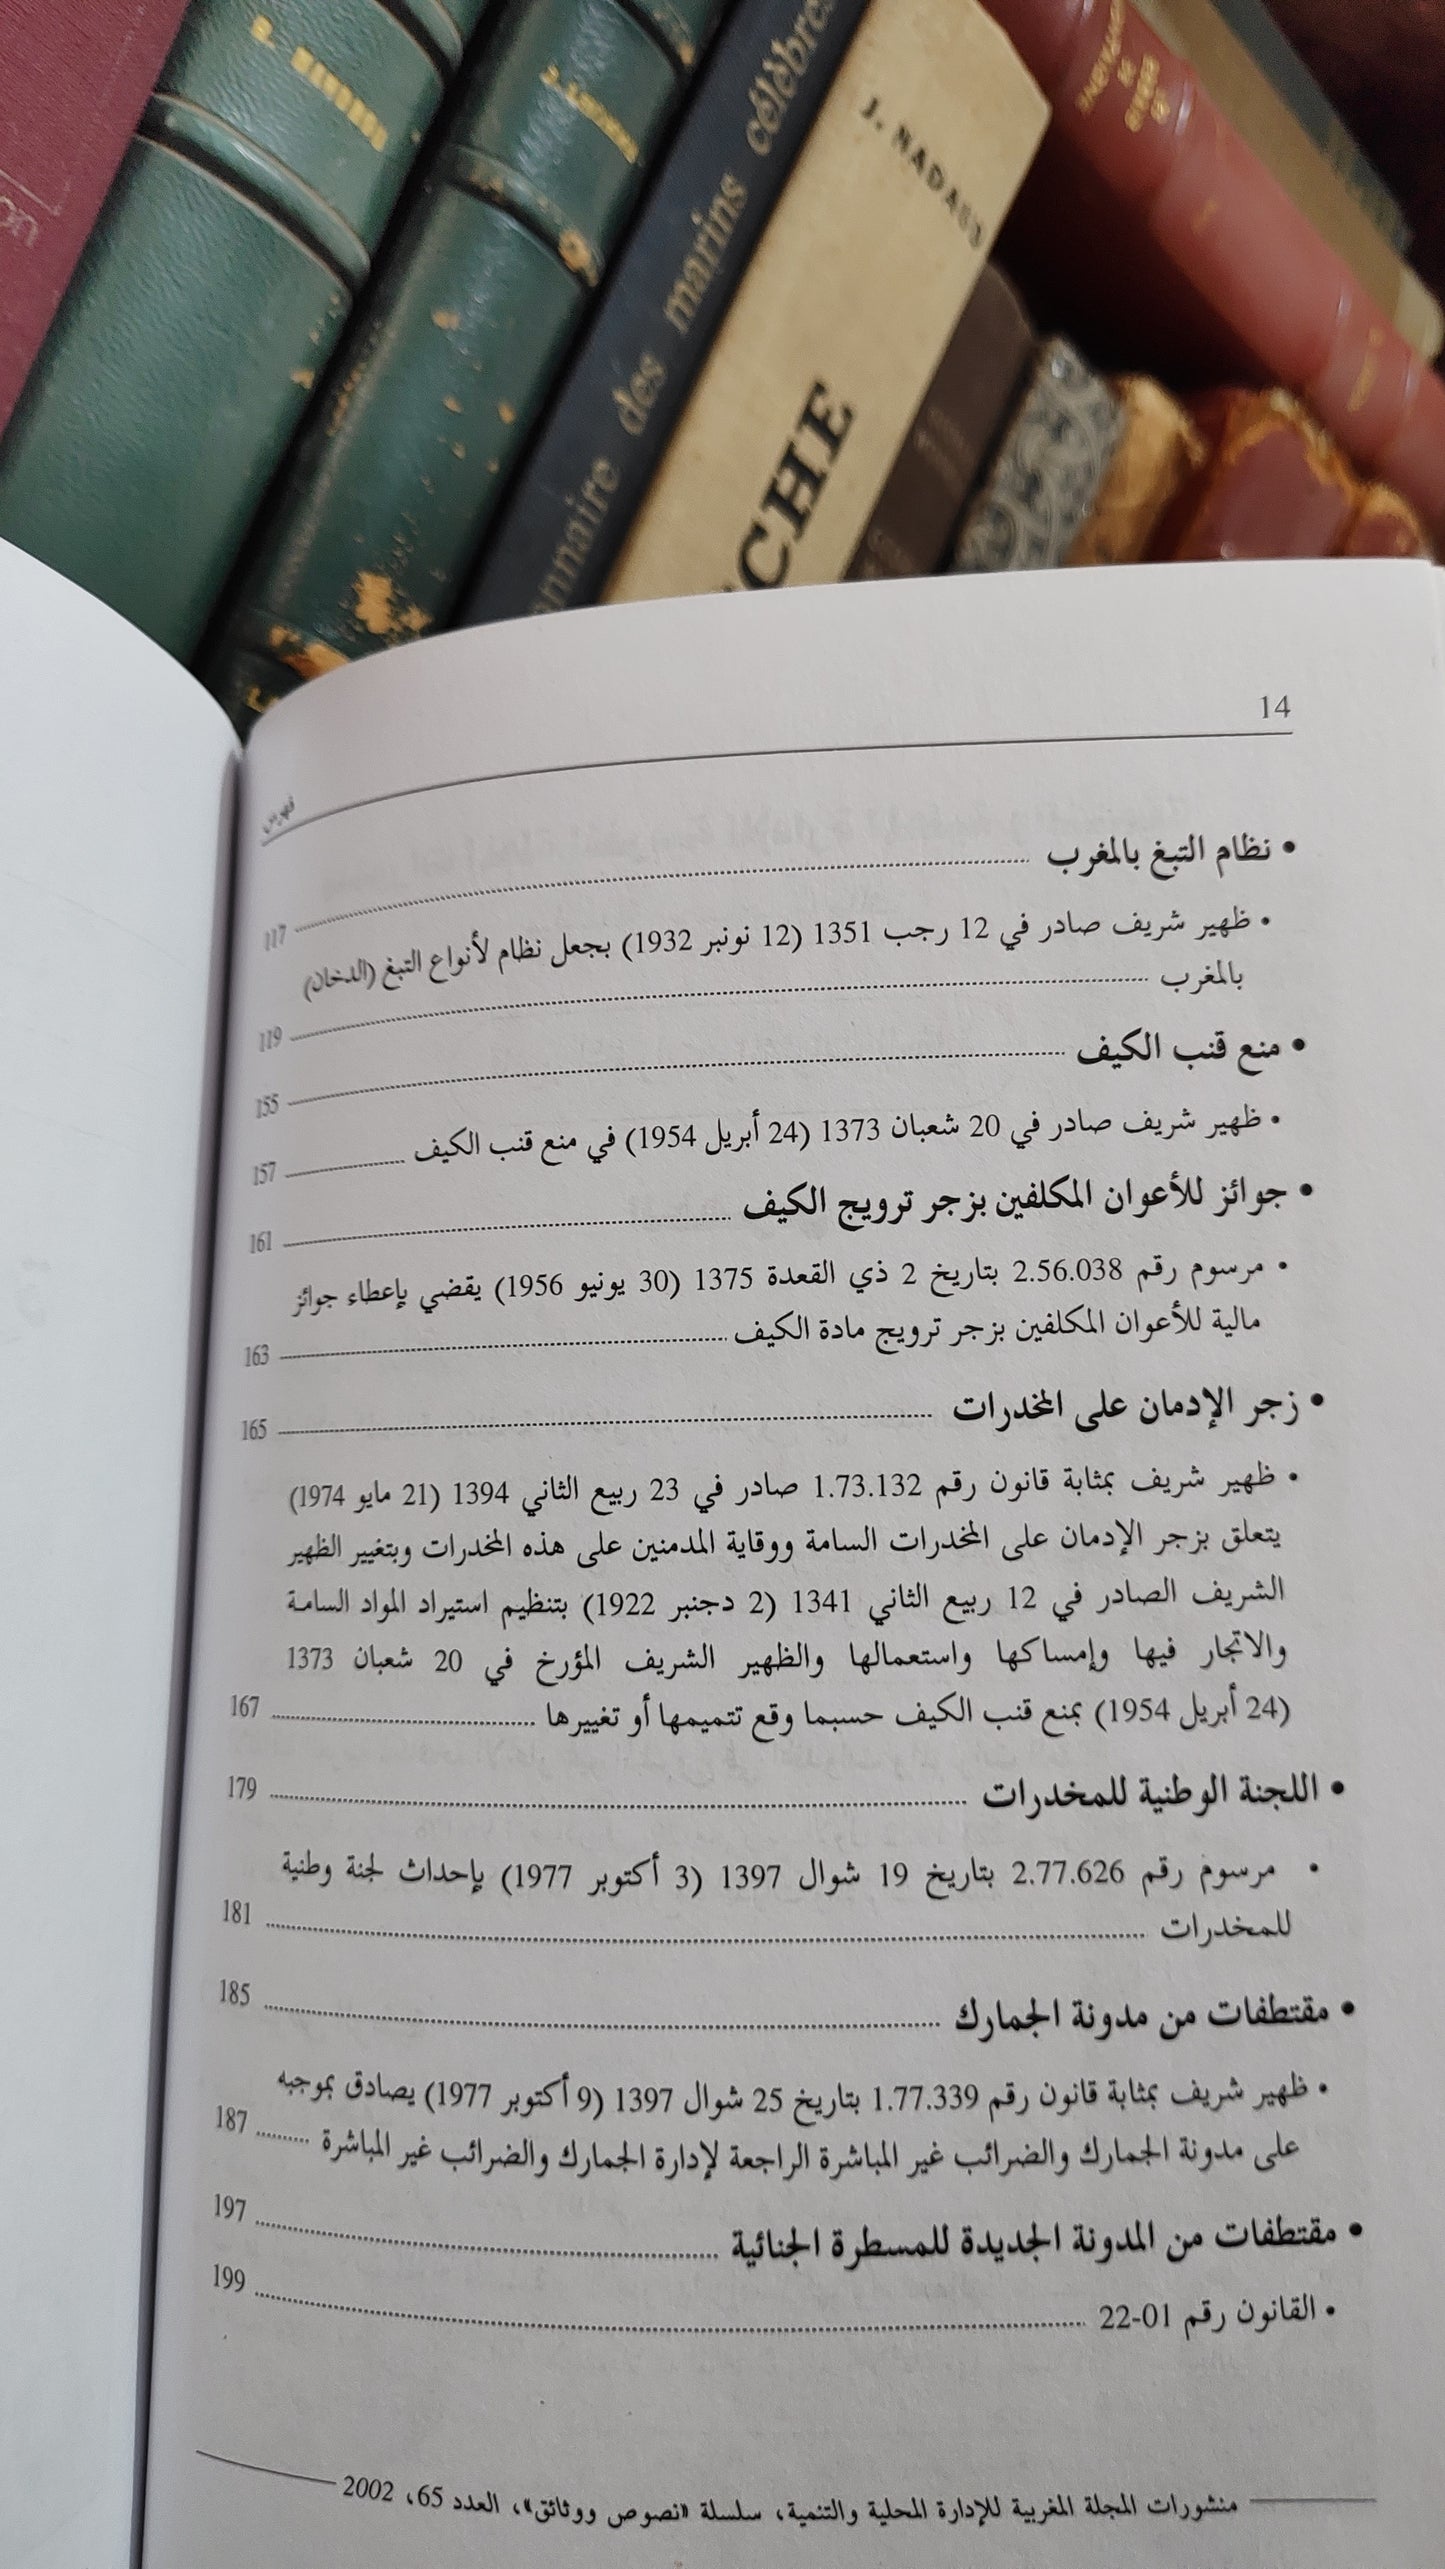 des marins célèbres
J. NADAUD
CHE
14
فهرس
• نظام التبغ بالمغرب ........ 117
• ظهير شريف صادر في 12 رجب 1351 (12 نونبر 1932) بجعل نظام لأنواع التبغ (الدخان)
بالمغرب ........ 119
• منع قنب الكيف ........ 155
• ظهير شريف صادر في 20 شعبان 1373 (24 أبريل 1954) في منع قنب الكيف ........ 157
• جوائز للأعوان المكلفين بزجر ترويج الكيف ........ 161
• مرسوم رقم 2.56.038 بتاريخ 2 ذي القعدة 1375 (30 يونيو 1956) يقضي بإعطاء جوائز
مالية للأعوان المكلفين بزجر ترويج مادة الكيف ........ 163
• زجر الإدمان على المخدرات ........ 165
• ظهير شريف بمثابة قانون رقم 1.73.132 صادر في 23 ربيع الثاني 1394 (21 مايو 1974)
يتعلق بزجر الإدمان على المخدرات السامة ووقاية المدمنين على هذه المخدرات وبتغيير الظهير
الشريف الصادر في 12 ربيع الثاني 1341 (2 دجنبر 1922) بتنظيم استيراد المواد السامة
والاتجار فيها وإمساكها واستعمالها والظهير الشريف المؤرخ في 20 شعبان 1373
(24 أبريل 1954) بمنع قنب الكيف حسبما وقع تتميمها أو تغييرها ........ 167
• اللجنة الوطنية للمخدرات ........ 179
• مرسوم رقم 2.77.626 بتاريخ 19 شوال 1397 (3 أكتوبر 1977) بإحداث لجنة وطنية
للمخدرات ........ 181
• مقتطفات من مدونة الجمارك ........ 185
• ظهير شريف بمثابة قانون رقم 1.77.339 بتاريخ 25 شوال 1397 (9 أكتوبر 1977) يصادق بموجبه
على مدونة الجمارك والضرائب غير المباشرة الراجعة لإدارة الجمارك والضرائب غير المباشرة ........ 187
• مقتطفات من المدونة الجديدة للمسطرة الجنائية ........ 197
• القانون رقم 01-22 ........ 199
منشورات المجلة المغربية للإدارة المحلية والتنمية، سلسلة «نصوص ووثائق»، العدد 65، 2002